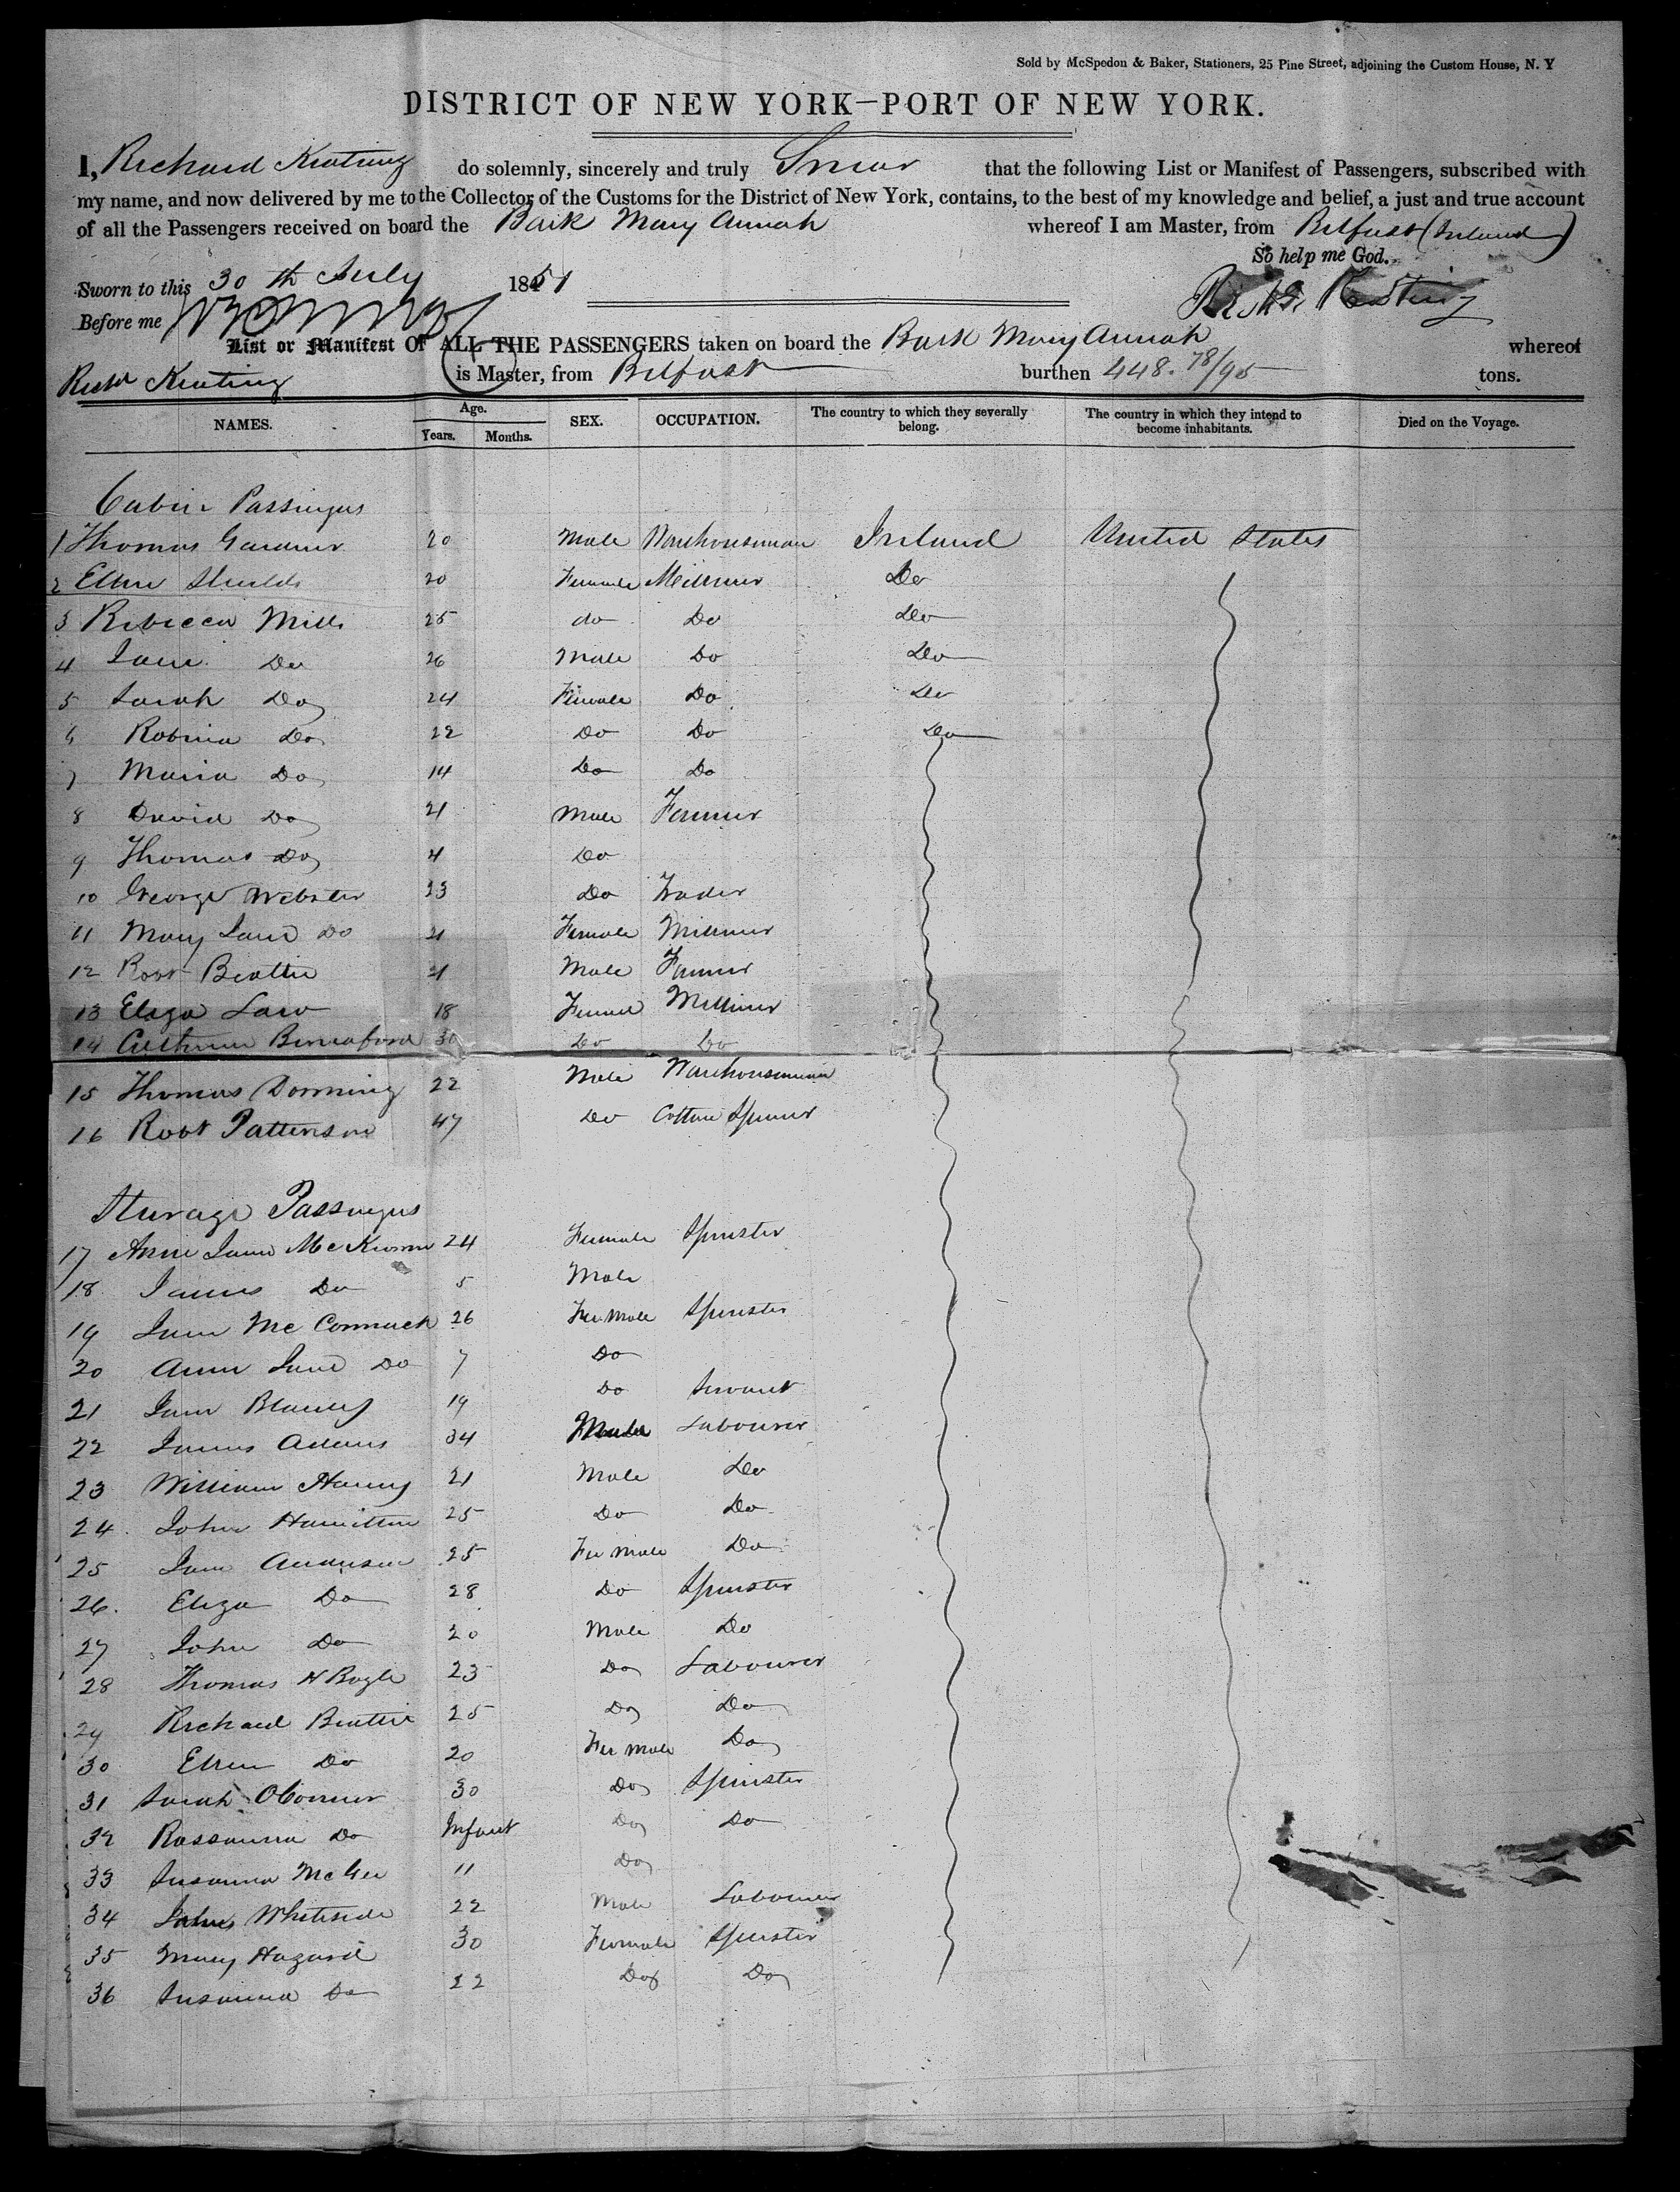 Sold by McSpedon & Baker, Stationers, 25 Pine Street, adjoining the Custom House, N. Y
DISTRICT OF NEW YORK—PORT OF NEW YORK.
I, Richard Keating do solemnly, sincerely and truly Swear that the following List or Manifest of Passengers, subscribed with
my name, and now delivered by me to the Collector of the Customs for the District of New York, contains, to the best of my knowledge and belief, a just and true account
of all the Passengers received on board the Bark Mary Annah whereof I am Master, from Belfast (Ireland)
So help me God.
Sworn to this 30th July 1851 Richd Keating
Before me
List or Manifest OF ALL THE PASSENGERS taken on board the Bark Mary Annah whereof
Richd Keating is Master, from Belfast burthen 448. 78/95 tons.
NAMES. Age. Years. Months. SEX. OCCUPATION. The country to which they severally belong. The country in which they intend to become inhabitants. Died on the Voyage.
Cabin Passengers
1 Thomas Gardner 20 Male Warehouseman Ireland United States
2 Ellen Shields 20 Female Milliner Do
3 Rebecca Mills 25 do Do Do
4 Jane Do 26 Male Do Do
5 Sarah Do 24 Female Do Do
6 Robina Do 22 Do Do Do
7 Maria Do 14 Do Do
8 David Do 21 Male Farmer
9 Thomas Do 4 Do
10 George Webster 23 Do Trader
11 Mary Jane Do 21 Female Milliner
12 Robt Beattie 21 Male Farmer
13 Eliza Law 18 Female Milliner
14 30 Do Do
15 Thomas Dorning 22 Male Warehouseman
16 Robt Patterson 47 Do Cotton Spinner
Sterage Passengers
17 Anne Jane McKeown 24 Female Spinster
18 James Do 5 Male
19 Jane McCormack 26 Female Spinster
20 Ann Jane Do 7 Do
21 Jane Blaney 19 Do Servant
22 James Adams 34 Male Labourer
23 William Hanny 21 Male Do
24. John Hamilton 25 Do Do
25 Jane Anderson 25 Female Do
26. Eliza Do 28 Do Spinster
27 John Do 20 Male Do
28 Thomas H Bogle 23 Do Labourer
29 Richard Beattie 25 Do Do
30 Ellen Do 20 Female Do
31 Sarah OConner 30 Do Spinster
32 Rossanna Do Infant Do Do
33 Susanna McGee 11 Do
34 Whiteside 22 Male Labourer
35 Mary Hazard 30 Female Spinster
36 Susanna Do 22 Do Do